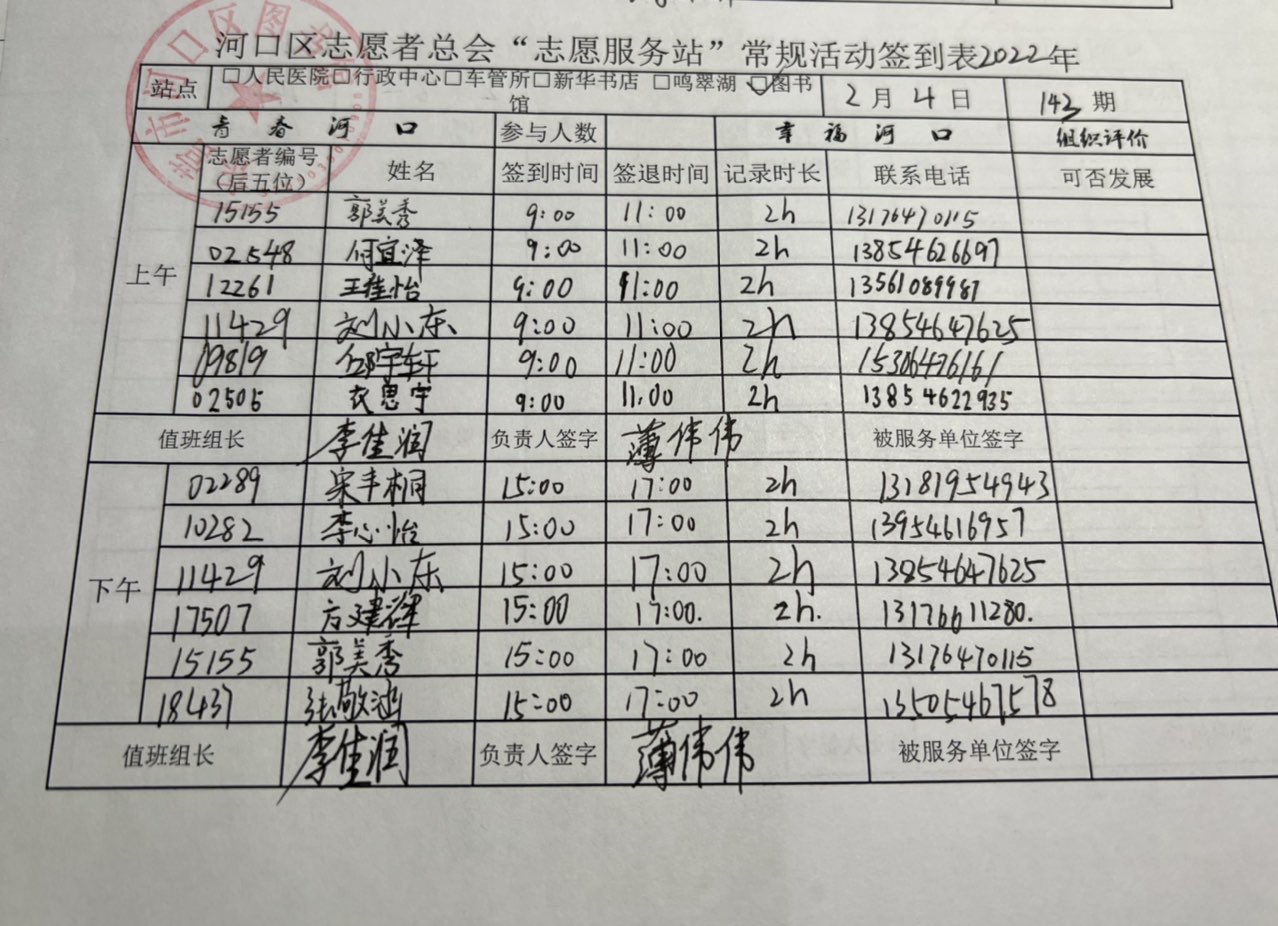 河口区志愿者总会“志愿服务站”常规活动签到表2022年
站点 □人民医院□行政中心□车管所□新华书店 □鸣翠湖 ☑图书馆 2月4日 142期
青春河口 参与人数 幸福河口 组织评价
志愿者编号(后五位) 姓名 签到时间 签退时间 记录时长 联系电话 可否发展
上午
15155 郭美秀 9:00 11:00 2h 13176470115
02548 何宜泽 9:00 11:00 2h 13854626697
12261 王佳怡 9:00 11:00 2h 13561089981
11429 刘小东 9:00 11:00 2h 13854647625
09819 邱宇轩 9:00 11:00 2h 15306476161
02505 衣思宇 9:00 11.00 2h 13854622935
值班组长 李佳润 负责人签字 薄伟伟 被服务单位签字
下午
02289 宋丰桐 15:00 17:00 2h 13181954943
10282 李心怡 15:00 17:00 2h 13954616957
11429 刘小东 15:00 17:00 2h 13854647625
17507 15:00 17:00. 2h. 13176611280.
15155 郭美秀 15:00 17:00 2h 13176470115
18437 张敬涵 15:00 17:00 2h 13505467578
值班组长 李佳润 负责人签字 薄伟伟 被服务单位签字